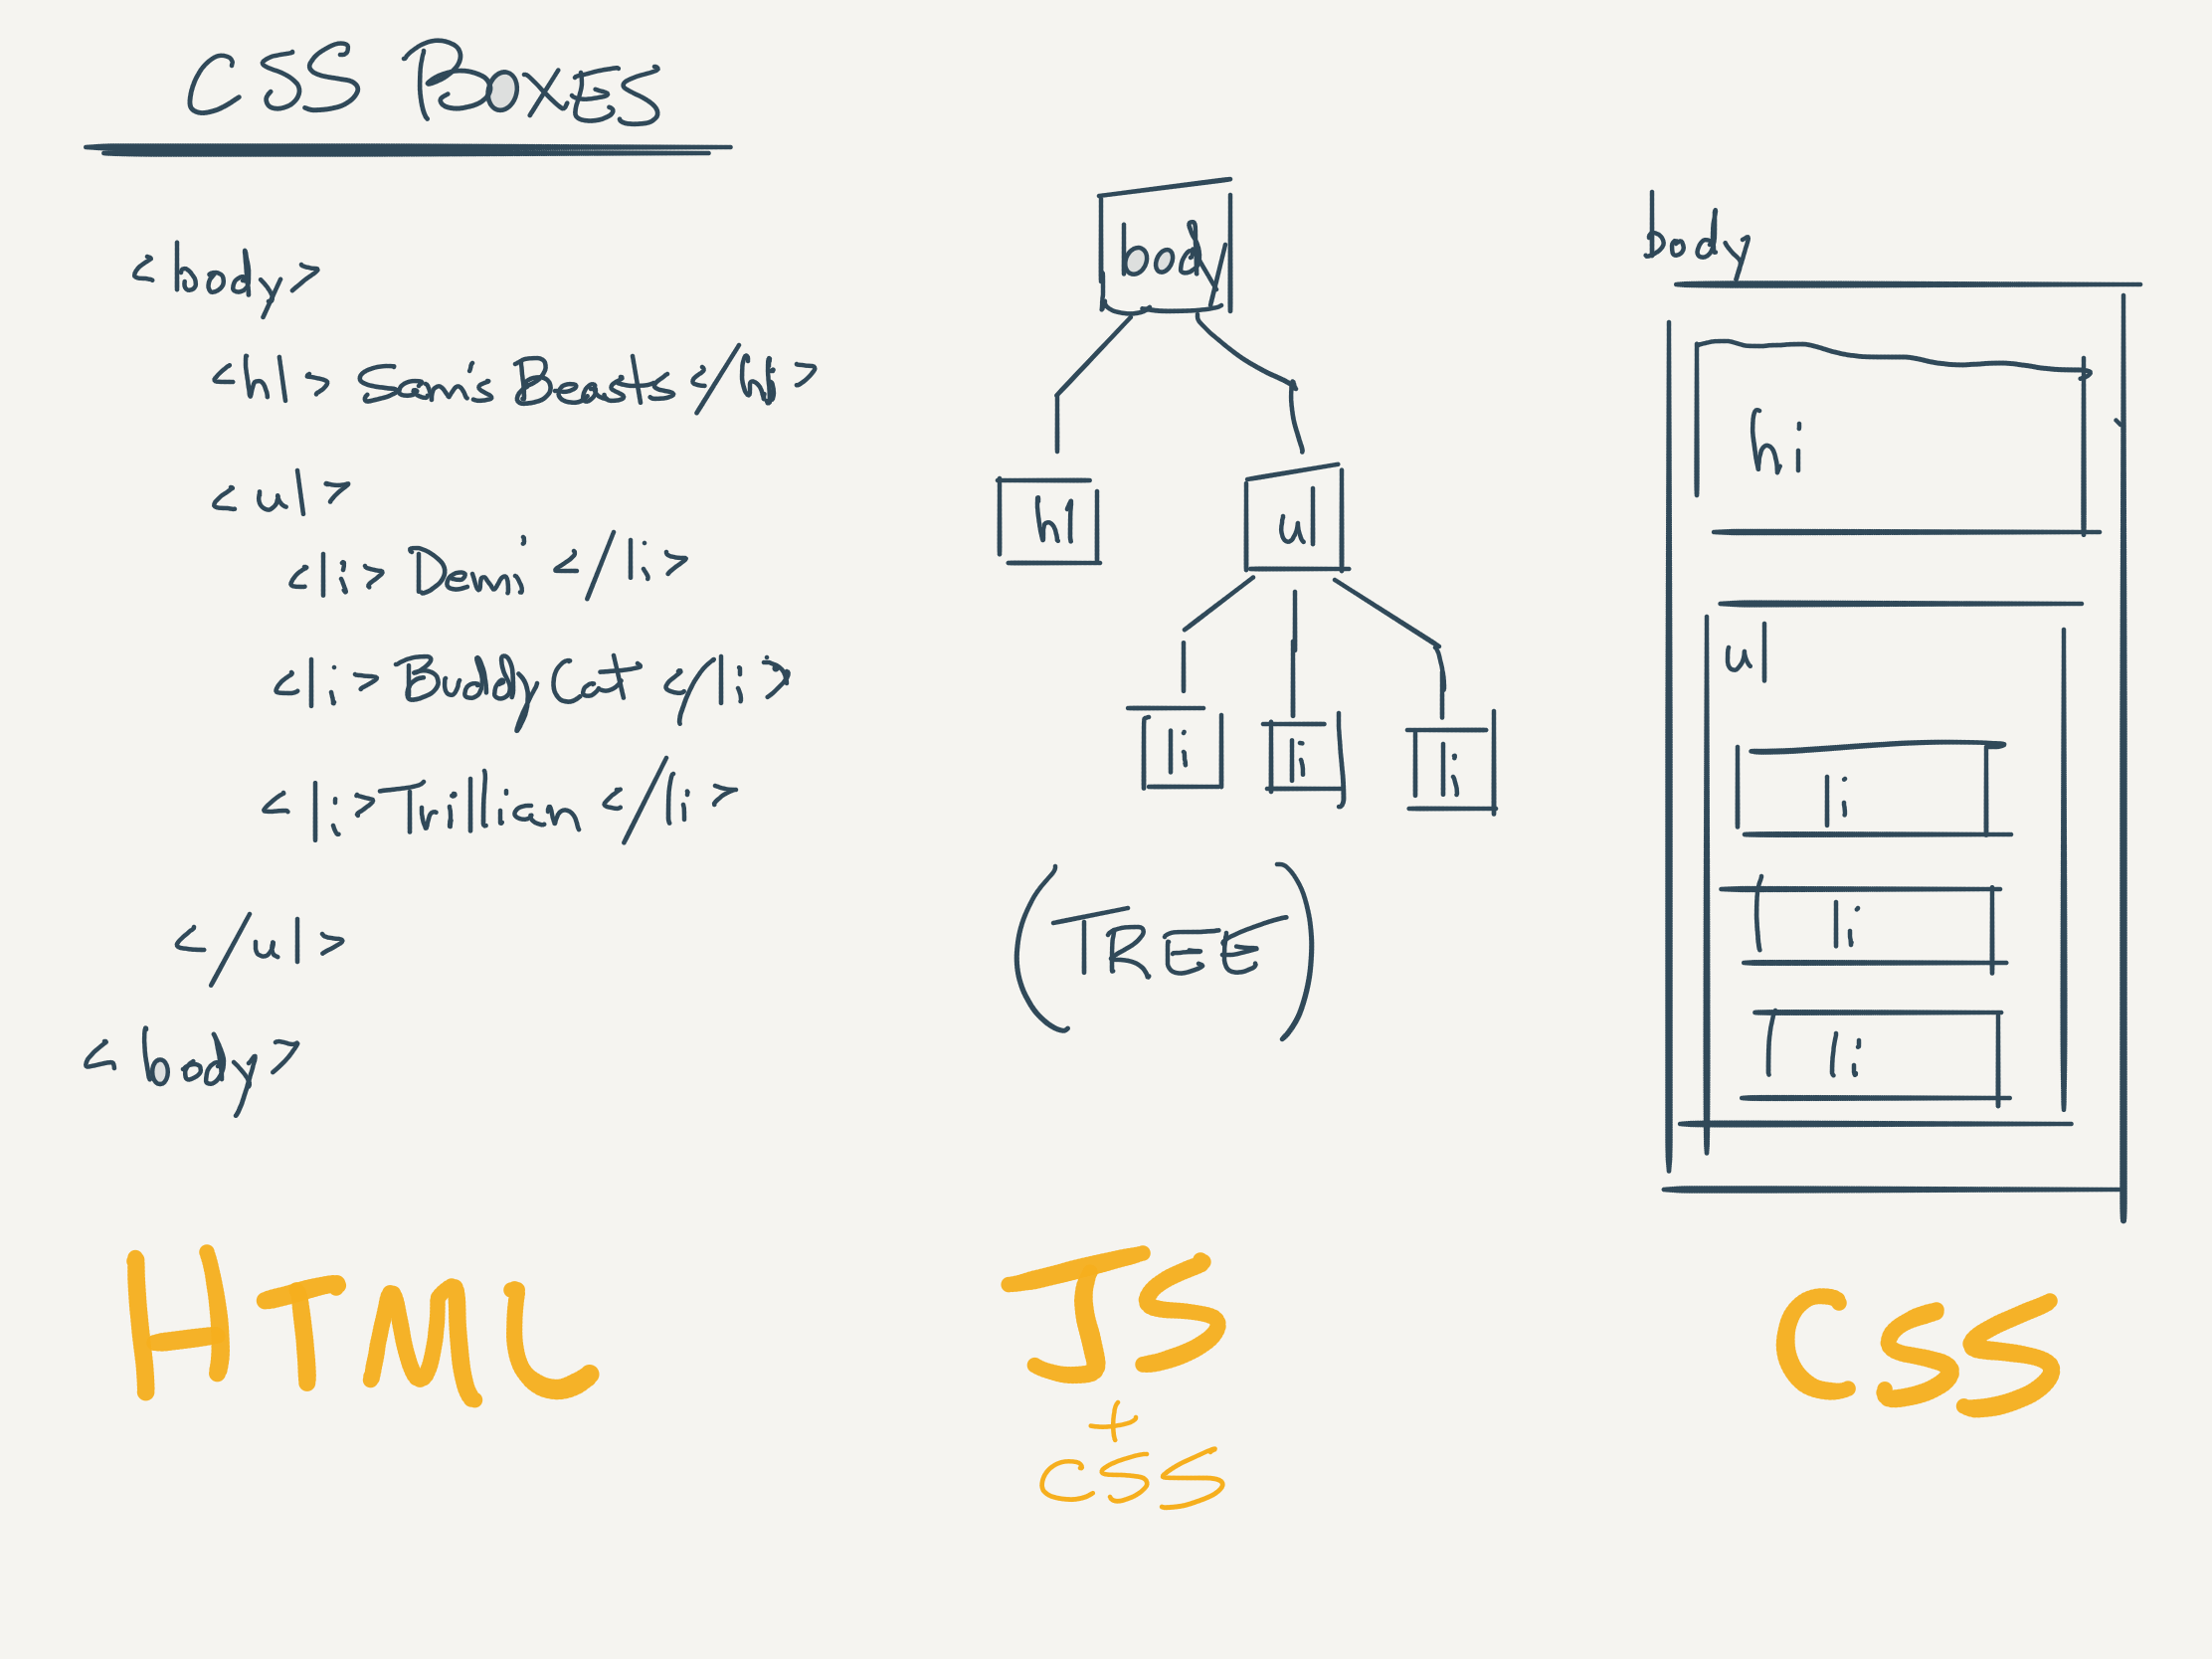 CSS BOXES
<body>
<h1> Sam's Beasts </h1>
<ul>
<li> Demi </li>
<li> Buddy Cat </li>
<li> Trillian </li>
</ul>
<body>
HTML
body
h1
ul
li
li
li
(TREE)
JS
+
CSS
body
hi
ul
li
li
li
CSS